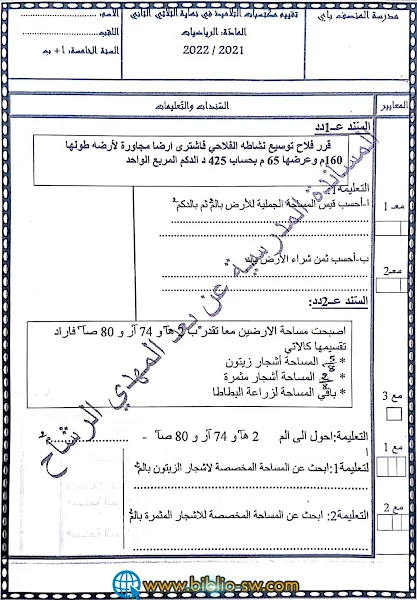 مدرسة المنصف باي
تقييم مكتسبات التلاميذ في نهاية الثلاثي الثاني
الاسم:
المادة: الرياضيات
اللقب:
2021 / 2022
السنة الخامسة: أ + ب
المعايير
السندات والتعليمات
السند عـ1دد
قرر فلاح توسيع نشاطه الفلاحي فاشترى ارضا مجاورة لأرضه طولها
160م وعرضها 65 م بحساب 425 د الدكم المربع الواحد
التعليمة 1:
معـ 1
أ-أحسب قيس المساحة الجملية للأرض بالم² ثم بالدكم²
معـ2
ب-أحسب ثمن شراء الأرض
السند عـ2دد:
اصبحت مساحة الارضين معا تقدر ب هآ و 74 آر و 80 صآ فاراد
تقسيمها كالآتي
* المساحة أشجار زيتون
* المساحة أشجار مثمرة
* باقي المساحة لزراعة البطاطا
مع 3
التعليمة: احول الى الم 2 هآ و 74 آر و 80 صآ -
مع 1
التعليمة1: ابحث عن المساحة المخصصة لاشجار الزيتون بالم²
مع 2
التعليمة2: ابحث عن المساحة المخصصة للاشجار المثمرة بالم²
المساندة المدرسية عن بعد المهدي الرشاح
www.biblio-sw.com